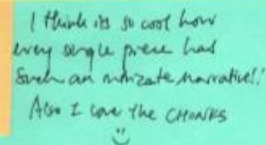 I think its so cool how
every single piece had
such an intricate narrative!
Also I love the CHONKS